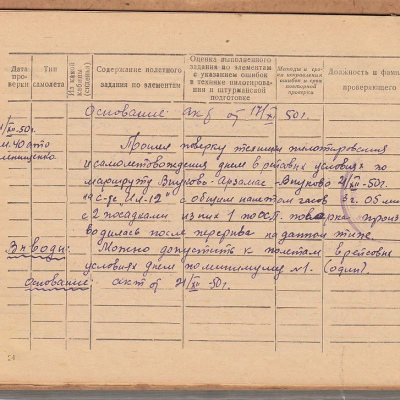 Дата проверки
Тип самолёта
Из какой кабины (сиденья)
Содержание полетного задания по элементам
Оценка выполненного задания по элементам с указанием ошибок в технике пилотирования и штурманской подготовке
Методы и сроки исправления ошибок и срок повторной проверки
Должность и фами
проверяющего
Основание: Акт от 17/XI 50г.
Прошел поверку техники пилотирования
и самолетовождения днем в рейсовых условиях по
маршруту Внуково-Арзамас-Внуково 21/XII-50г.
на с-те "Ил-12" с общим налетом часов 3 г. 05 мин
с 2 посадками из них 1 пост. поверка произ
водилась после перерыва на данном типе.
Выводы: Можно допустить к полетам в рейсовых
условиях днем по минимуму №1. (один).
Основание: акт от 21/XII 50г.